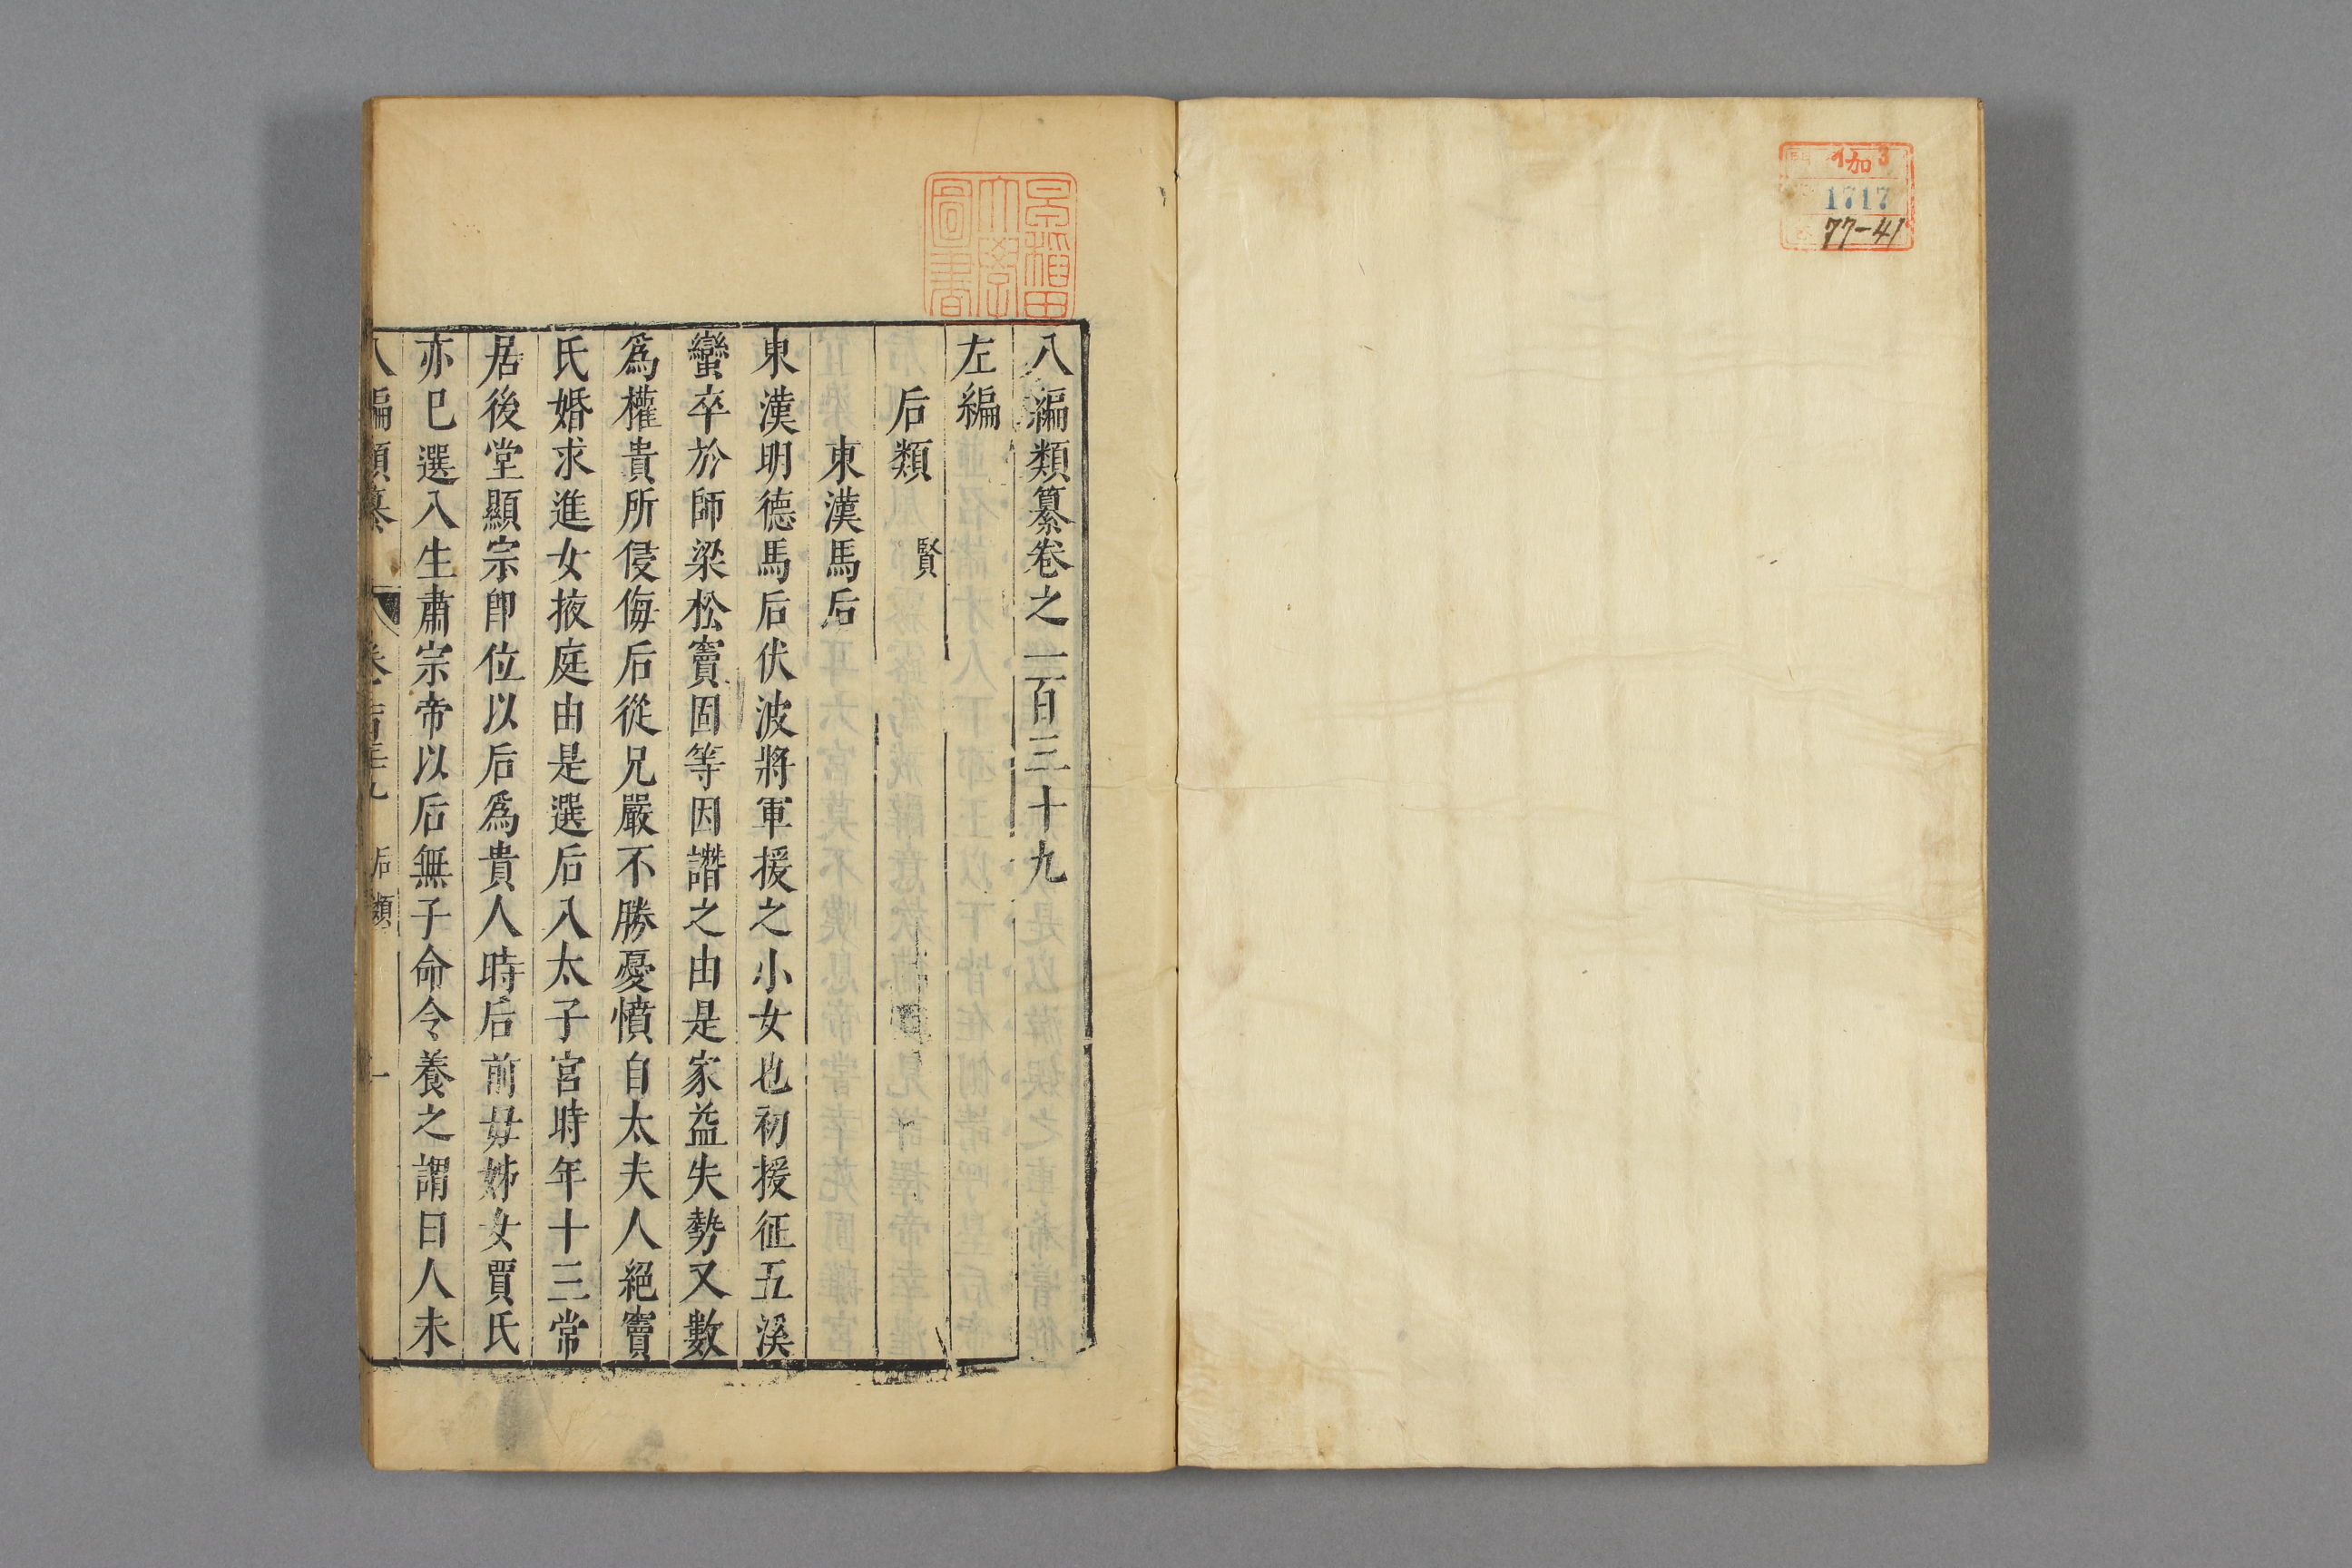 伽 3
1717
77-41
早稲田
大學
圖書
八編類纂卷之一百三十九
左編
后類 賢
東漢馬后
東漢明德馬后伏波將軍援之小女也初援征五溪
蠻卒於師梁松竇固等因譖之由是家益失勢又數
爲權貴所侵侮后從兄嚴不勝憂憤白太夫人絕竇
氏婚求進女掖庭由是選后入太子宮時年十三常
居後堂顯宗卽位以后爲貴人時后前毋姊女賈氏
亦已選入生肅宗帝以后無子命令養之謂曰人未
八編類纂 卷一百三十九 后類 一